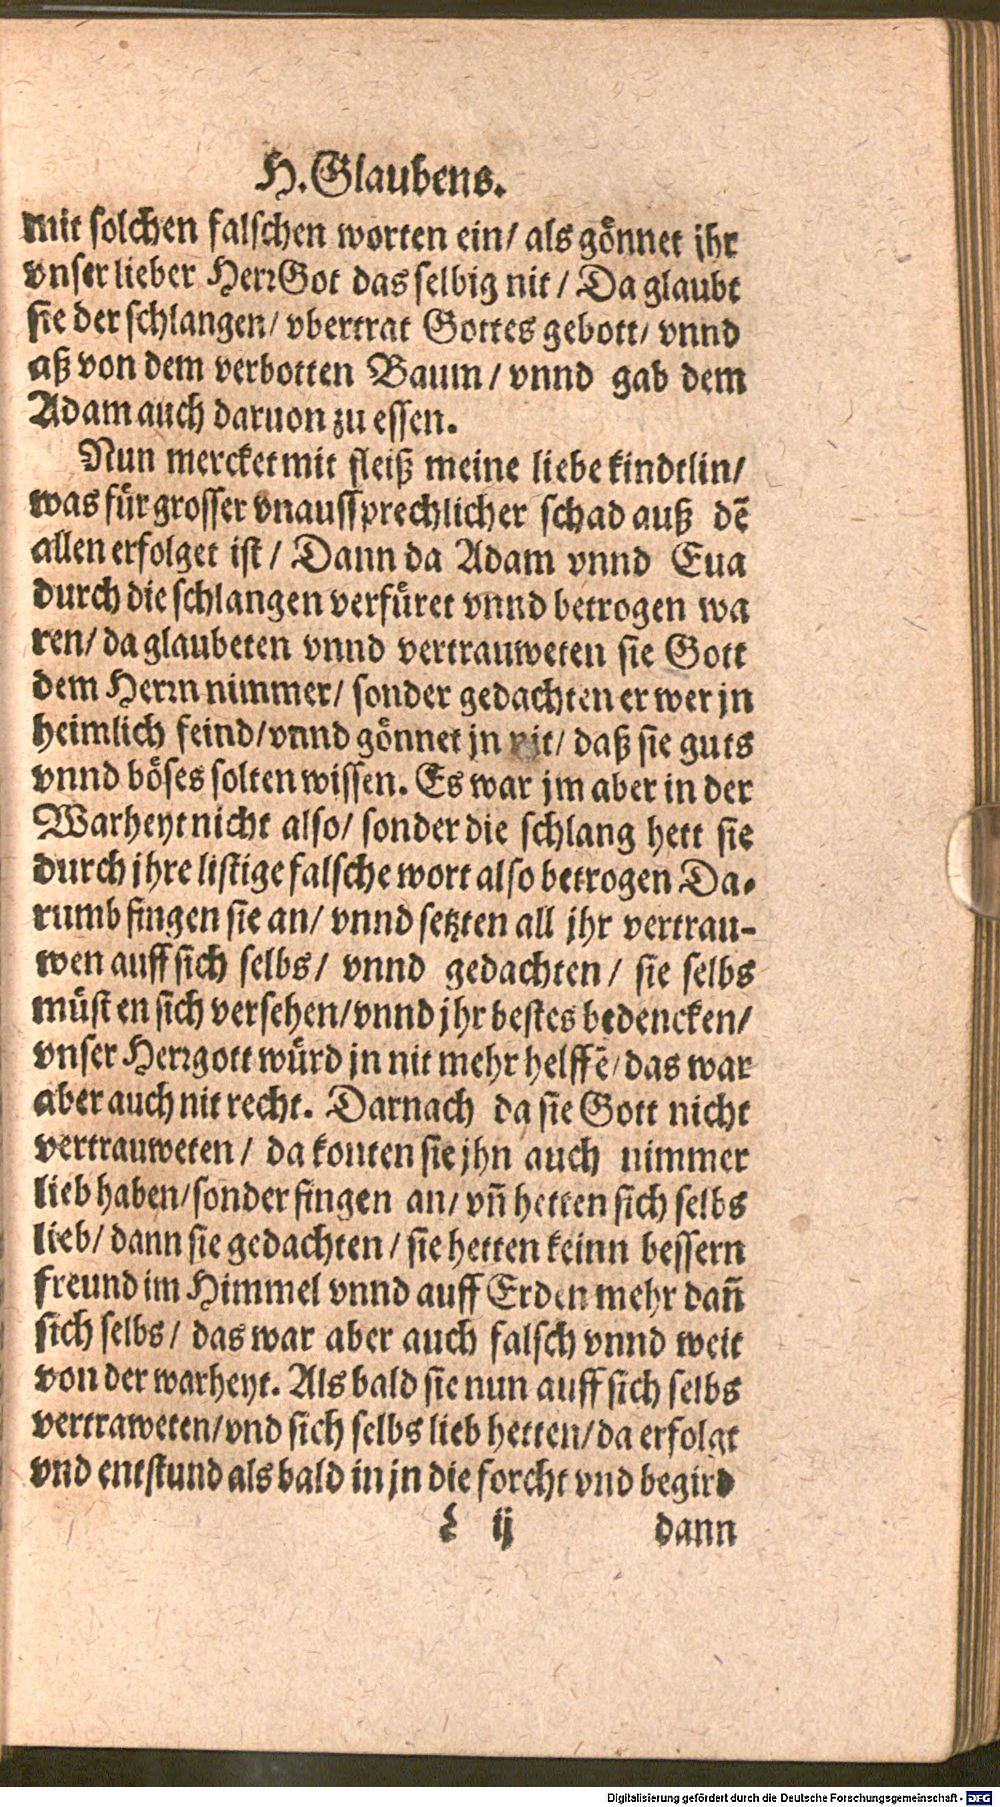 H. Glaubens.
mit solchen falschen worten ein/ als gönnet jhr
vnser lieber HerrGot das selbig nit/ Da glaubt
sie der schlangen/ vbertrat Gottes gebott/ vnnd
aß von dem verbotten Baum/ vnnd gab dem
Adam auch daruon zu essen.
Nun mercket mit fleiß meine liebe kindtlin/
was für grosser vnaussprechlicher schad auß dē
allen erfolget ist/ Dann da Adam vnnd Eua
durch die schlangen verfüret vnnd betrogen wa
ren/ da glaubeten vnnd vertrauweten sie Gott
dem Herrn nimmer/ sonder gedachten er wer jn
heimlich feind/ vnnd gönnet jn nit/ daß sie guts
vnnd böses solten wissen. Es war jm aber in der
Warheyt nicht also/ sonder die schlang hett sie
durch jhre listige falsche wort also betrogen Da-
rumb fingen sie an/ vnnd setzten all jhr vertrau-
wen auff sich selbs/ vnnd gedachten/ sie selbs
müsten sich versehen/ vnnd jhr bestes bedencken/
vnser Herrgott würd jn nit mehr helffē/ das war
aber auch nit recht. Darnach da sie Gott nicht
vertrauweten/ da konten sie jhn auch nimmer
lieb haben/ sonder fingen an/ vn̄ hetten sich selbs
lieb/ dann sie gedachten/ sie hetten keinn bessern
freund im Himmel vnnd auff Erden mehr dan̄
sich selbs/ das war aber auch falsch vnnd weit
von der warheyt. Als bald sie nun auff sich selbs
vertraweten/ vnd sich selbs lieb hetten/ da erfolgt
vnd entstund als bald in jn die forcht vnd begird
ij dann
Digitalisierung gefördert durch die Deutsche Forschungsgemeinschaft - DFG